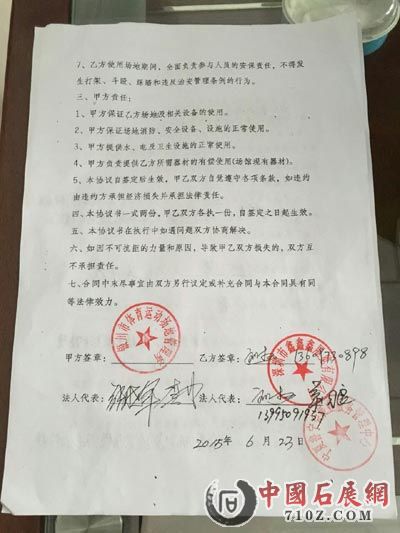 7、乙方使用场地期间,全面负责参与人员的安保责任,不得发
生打架、斗殴、赌赙和违反治安管理条例的行为。
三、甲方责任:
1、甲方保证乙方场地及相关设备的使用。
2、甲方保证场地消防、安全设备、设施的正常使用。
3、甲方提供水、电及卫生设施的正常使用。
4、甲方负责提供乙方所需器材的有偿使用(场馆现有器材)。
5、本协议自签定后生效,甲乙双方自觉遵守各项条款,如违约
由违约方承担经济损失并承担法律责任。
四、本协议书一式两份,甲乙双方各执一份,自签定之日起生效。
五、本协议书在执行中如遇问题双方协商解决。
六、如因不可抗拒的力量和原因,导致甲乙双方损失的,双方互
不承担责任。
七、合同中未尽事宜由双方另行议定或补充合同与本合同具有同
等法律效力。
银川市体育运动场地管理
甲方签章:
乙方签章:
深圳市鑫鑫鑫
法人代表:
法人代表:
13995091937
2015年 6月23日
中國石展網
710Z.com